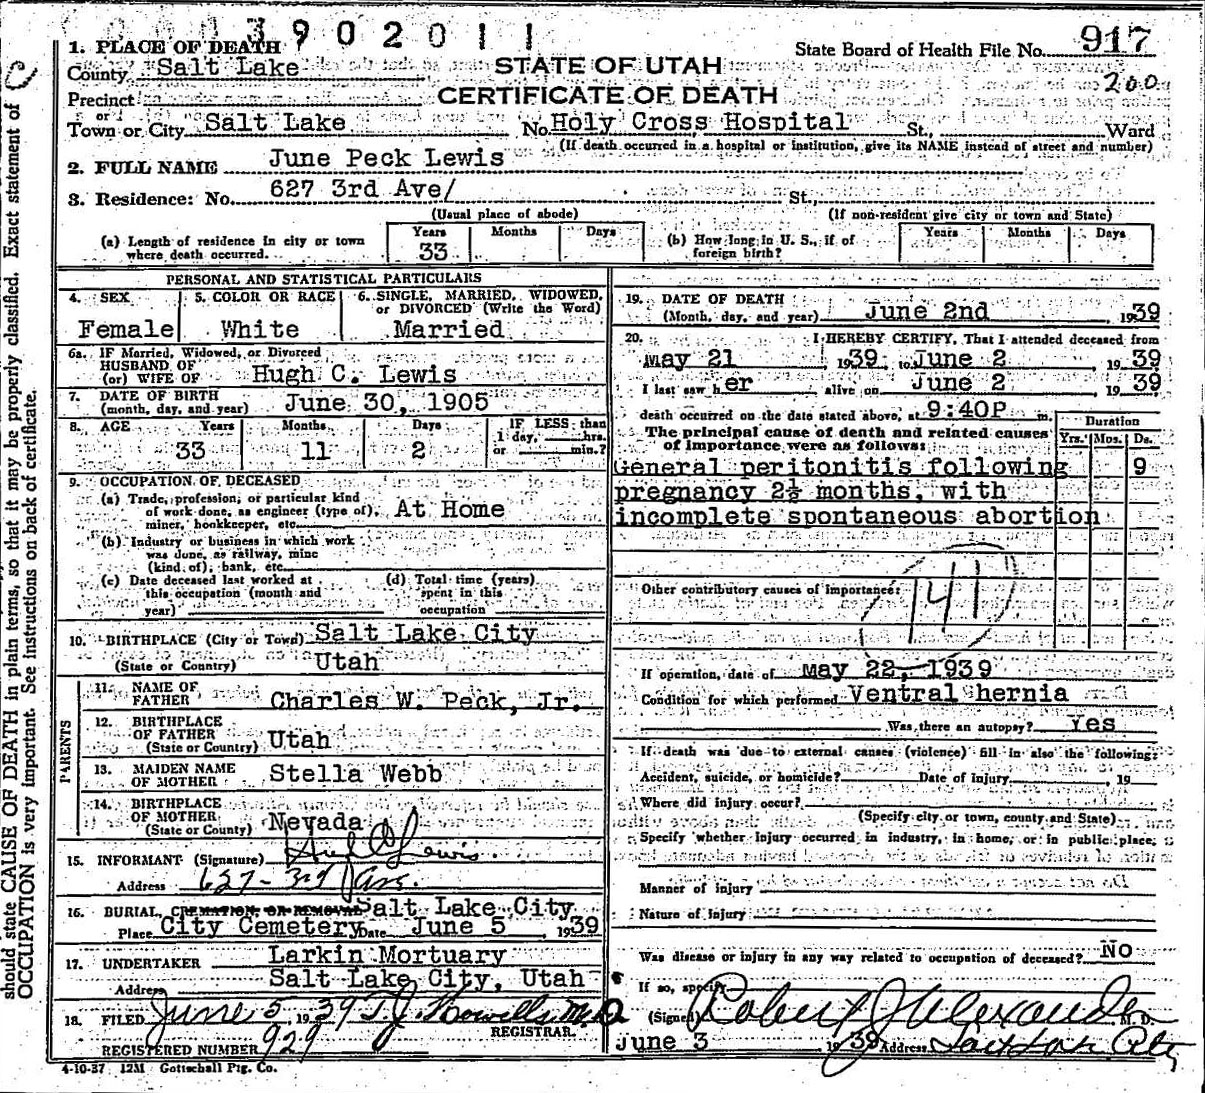 3 9 0 2 0 1 1
1. PLACE OF DEATH
State Board of Health File No. 917
County Salt Lake
STATE OF UTAH
200
Precinct
CERTIFICATE OF DEATH
or
Town or City Salt Lake No. Holy Cross Hospital St., Ward
(If death occurred in a hospital or institution, give its NAME instead of street and number)
2. FULL NAME June Peck Lewis
3. Residence: No. 627 3rd Ave/ St.,
(Usual place of abode) (If non-resident give city or town and State)
(a) Length of residence in city or town where death occurred. Years 33 Months Days
(b) How long in U. S., if of foreign birth? Years Months Days
PERSONAL AND STATISTICAL PARTICULARS
4. SEX Female
5. COLOR OR RACE White
6. SINGLE, MARRIED, WIDOWED, or DIVORCED (Write the Word) Married
6a. IF Married, Widowed, or Divorced
HUSBAND OF
(or) WIFE OF Hugh C. Lewis
7. DATE OF BIRTH
(month, day, and year) June 30, 1905
8. AGE Years Months Days IF LESS than
33 11 2 1 day, hrs. or min.?
9. OCCUPATION OF DECEASED
(a) Trade, profession, or particular kind
of work done, as engineer (type of), At Home
miner, bookkeeper, etc.
(b) Industry or business in which work
was done, as railway, mine
(kind of), bank, etc.
(c) Date deceased last worked at this occupation (month and year)
(d) Total time (years) spent in this occupation
10. BIRTHPLACE (City or Town) Salt Lake City
(State or Country) Utah
PARENTS
11. NAME OF FATHER Charles W. Peck, Jr.
12. BIRTHPLACE OF FATHER (State or Country) Utah
13. MAIDEN NAME OF MOTHER Stella Webb
14. BIRTHPLACE OF MOTHER (State or Country) Nevada
15. INFORMANT (Signature) Hugh C Lewis
Address 627 - 3rd Ave.
16. BURIAL, CREMATION, OR REMOVAL Salt Lake City
Place City Cemetery Date June 5, 1939
17. UNDERTAKER Larkin Mortuary
Address Salt Lake City, Utah
18. FILED June 5, 1939 T. J. Howells M.D.
REGISTRAR.
REGISTERED NUMBER 929
4-10-37 12M Gottschall Ptg. Co.
19. DATE OF DEATH
(Month, day, and year) June 2nd, 1939
20. I HEREBY CERTIFY, That I attended deceased from
May 21 1939 to June 2, 1939
I last saw her alive on June 2, 1939
death occurred on the date stated above, at 9:40P m.
Duration
The principal cause of death and related causes of importance were as follows: Yrs. Mos. Ds.
General peritonitis following 9
pregnancy 2½ months, with
incomplete spontaneous abortion
Other contributory causes of importance:
141
If operation, date of May 22, 1939
Condition for which performed Ventral hernia
Was there an autopsy? Yes
If death was due to external causes (violence) fill in also the following:
Accident, suicide, or homicide? Date of injury 19
Where did injury occur?
(Specify city or town, county and State)
Specify whether injury occurred in industry, in home, or in public place,
Manner of injury
Nature of injury
Was disease or injury in any way related to occupation of deceased? No
If so, specify
(Signed) Robert J Alexander M. D.
June 3 1939 Address Salt Lake City
should state CAUSE OF DEATH in plain terms, so that it may be properly classified. Exact statement of
OCCUPATION is very important. See instructions on back of certificate.